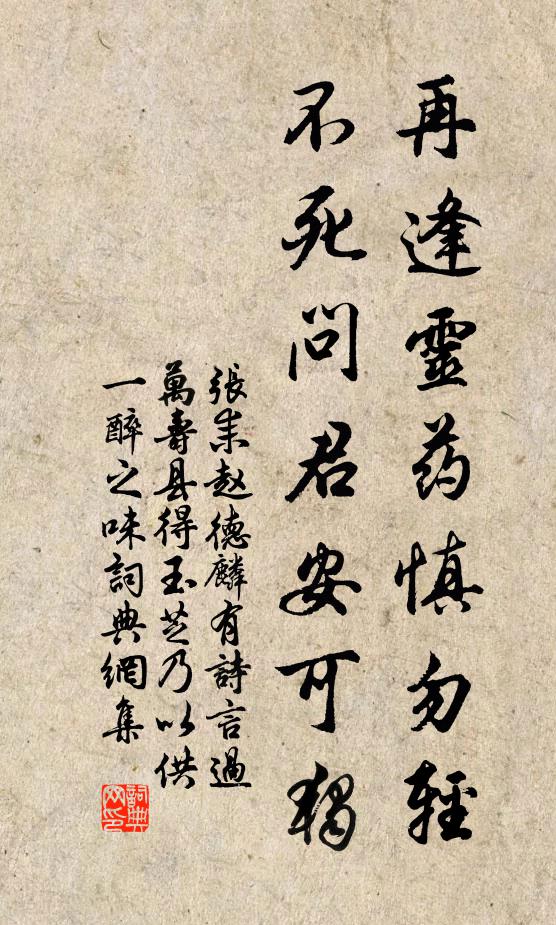 再逢靈药慎勿輕
不死問君安可獨
張耒赵德麟有詩言過
萬壽县得玉芝乃以供
一醉之味詞典網集
詞典网印